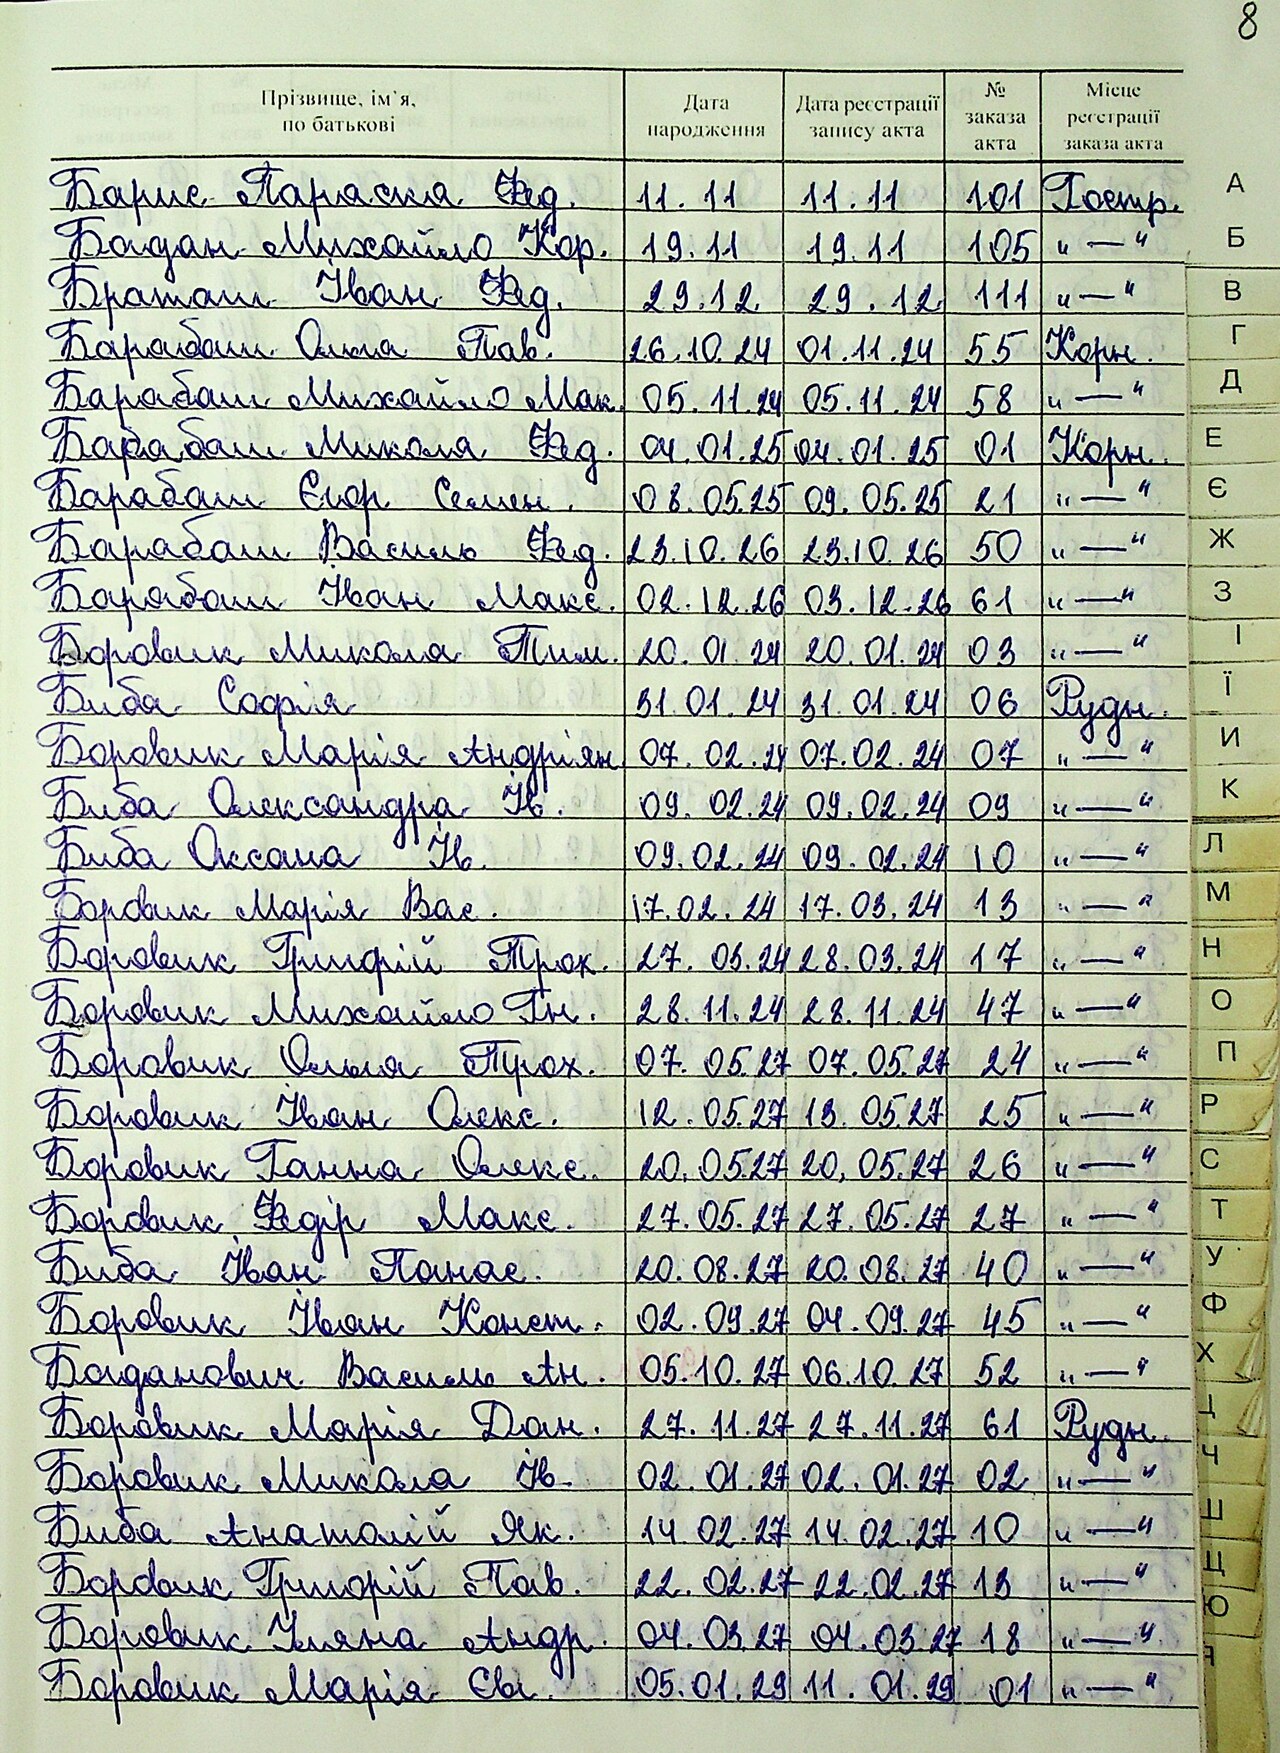 8
Прізвище, ім'я, по батькові | Дата народження | Дата реєстрації запису акта | № заказа акта | Місце реєстрації заказа акта
Барис Параска Фед. 11.11 11.11 101 Гостр.
Богдан Михайло Кор. 19.11 19.11 105 „—“
Браташ Іван Фед. 29.12 29.12 111 „—“
Барабаш Ольга Пав. 26.10.24 01.11.24 55 Корн.
Барабаш Михайло Мак. 05.11.24 05.11.24 58 „—“
Барабаш Микола Фед. 04.01.25 04.01.25 01 Корн.
Барабаш Єгор Семен. 08.05.25 09.05.25 21 „—“
Барабаш Василь Фед. 23.10.26 23.10.26 50 „—“
Барабаш Іван Макс. 02.12.26 03.12.26 61 „—“
Боровик Микола Тим. 20.01.24 20.01.24 03 „—“
Биба Софія 31.01.24 31.01.24 06 Рудн.
Боровик Марія Андріян 07.02.24 07.02.24 07 „—“
Биба Олександра Ів. 09.02.24 09.02.24 09 „—“
Биба Оксана Ів. 09.02.24 09.02.24 10 „—“
Боровик Марія Вас. 17.02.24 17.03.24 13 „—“
Боровик Григорій Трох. 27.03.24 28.03.24 17 „—“
Боровик Михайло Гн. 28.11.24 28.11.24 47 „—“
Боровик Ольга Трох. 07.05.27 07.05.27 24 „—“
Боровик Іван Олекс. 12.05.27 13.05.27 25 „—“
Боровик Ганна Олекс. 20.05.27 20.05.27 26 „—“
Боровик Федір Макс. 27.05.27 27.05.27 27 „—“
Биба Іван Панас. 20.08.27 20.08.27 40 „—“
Боровик Іван Конст. 02.09.27 04.09.27 45 „—“
Богданович Василь Ан. 05.10.27 06.10.27 52 „—“
Боровик Марія Дан. 27.11.27 27.11.27 61 Рудн.
Боровик Микола Ів. 02.01.27 02.01.27 02 „—“
Биба Анатолій Як. 14.02.27 14.02.27 10 „—“
Боровик Григорій Пав. 22.02.27 22.02.27 13 „—“
Боровик Уляна Андр. 04.03.27 04.03.27 18 „—“
Боровик Марія Євг. 05.01.29 11.01.29 01 „—“
А
Б
В
Г
Д
Е
Є
Ж
З
І
Ї
И
К
Л
М
Н
О
П
Р
С
Т
У
Ф
Х
Ц
Ч
Ш
Щ
Ю
Я